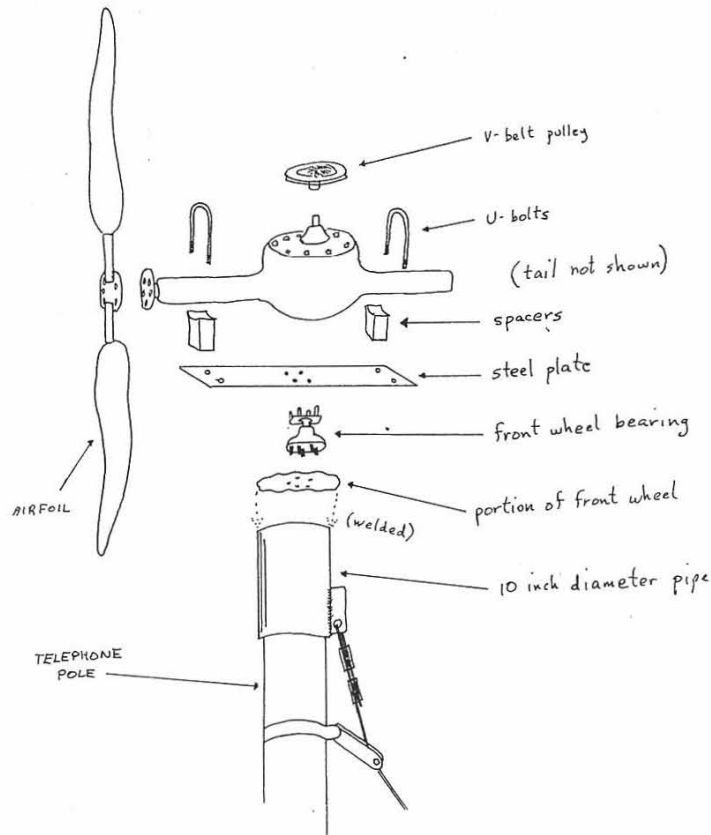 V-belt pulley
U-bolts
(tail not shown)
spacers
steel plate
front wheel bearing
AIRFOIL
portion of front wheel
(welded)
10 inch diameter pipe
TELEPHONE
POLE